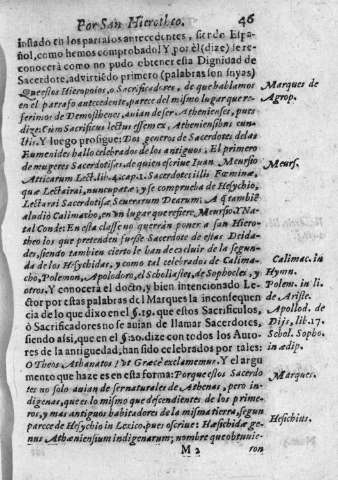 Por San Hierotheo. 46
instado en los parrafos antecedentes, ser de Espa-
ñol, como hemos comprobado! Y por èl (dize) se re-
conocerà como no pudo obtener esta Dignidad de
Sacerdote, advirtiẽdo primero (palabras son suyas)
Que estos Hieropoios, o Sacrificadores, de que hablamos
en el parrafo antecedente, parece del mismo lugar que re-
ferimos de Demosthenes, avian de ser Athenienses, pues
dize: Cum Sacrificus lectus essem ex Atheniensibus cun-
ctis. Y luego prosigue: Dos generos de Sacerdotes de las
Eumenides hallo celebrados de los antiguos. El primero
de mugeres Sacerdotisas, de quien escrive Iuan Meursio
Atticarum Lect. lib. 4. cap. 1. Sacerdotes illis Fœminæ,
quæ Lectairai, nuncupatæ; y se comprueba de Hesychio,
Lectarai Sacerdotisæ Severarum Dearum: A q̃ tambiẽ
aludiò Calimacho, en vn lugar que refiere, Meursio, y Na-
tal Conde: En esta classe no querràn poner a san Hiero-
theo los que pretenden fuesse Sacerdote de estas Deida-
des, siendo tambien cierto le han de excluir de la segun-
da de los Hesychidas, y como tal celebrados de Calima-
cho, Polemon, Apolodoro, el Scholiastes, de Sophocles, y
otros. Y conocerà el docto, y bien intencionado Le-
ctor por estas palabras del Marques la inconsequen
cia de lo que dixo en el §. 19. que estos Sacrificulos,
ò Sacrificadores no se avian de llamar Sacerdotes,
siendo assi, que en el §. 20. dize con todos los Auto-
res de la antiguedad, han sido celebrados por tales:
O Theos Athanatos! vt Græcè exclamemus. Y el argu
mento que haze es en esta forma: Porque estos Sacerdo
tes no solo avian de ser naturales de Athenas, pero in-
digenas, que es lo mismo que descendientes de los prime-
ros, y mas antiguos habitadores de la misma tierra, segun
parece de Hesychio in Lexico, pues escrive: Hæsichidæ ge-
nus Athæniensium indigenarum; nombre que obtuvie-
M 2 ron
Marques de
Agrop.
Meurs.
Calimac. in
Hymn.
Polem. in li.
de Ariste.
Apollod. de
Dijs, lib. 17.
Schol. Sopho.
in ædip.
Marques.
Hesichius.